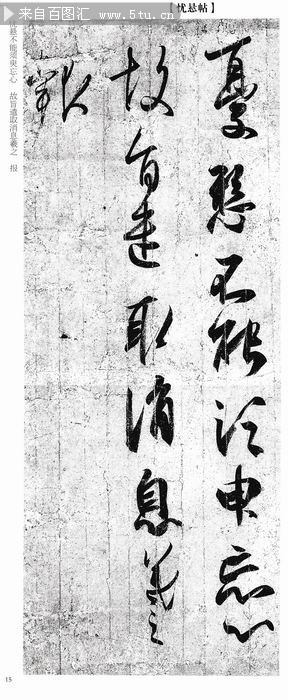 来自百图汇 www.5tu.cn
【忧悬帖】
憂懸不能須臾忘心
故旨遣取消息羲之
報
悬不能须臾忘心 故旨遣取消息羲之 报
15